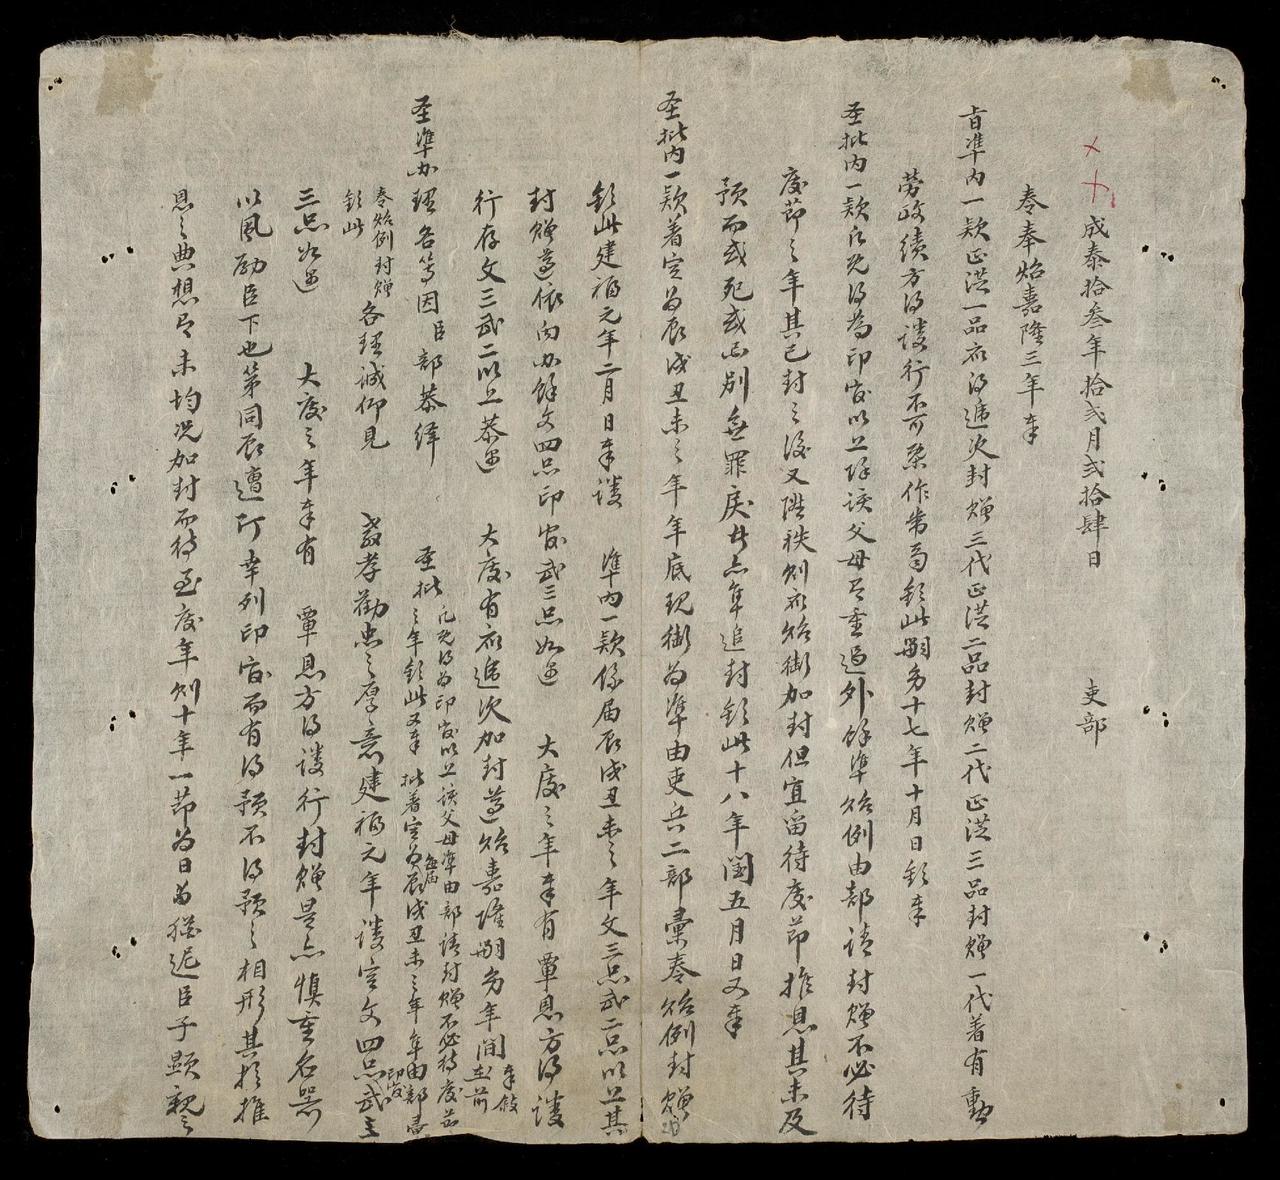 成泰拾叁年拾弍月弍拾肆日 吏部
奏奉炤嘉隆三年奉
旨準內一款正從一品衣得遞次封贈三代正從二品封贈二代正從三品封贈一代著有勳
勞政績方得議行不可槩作常局欽此嗣多十七年十月日欽奉
圣批內一款凡既得為印官以上除該父母尽重過外餘準炤例由部請封贈不必待
慶節之年其已封之後又陞秩則衣炤銜加封但宜留待慶節推恩其未及
預而或死或亡別無罪戾者亦準追封欽此十八年閏五月日又奉
圣批內一款著定為辰戌丑未之年年底現銜為準由吏兵二部彙奏炤例封贈
欽此建福元年二月日奉議 準內一款係屆辰戌丑未之年文三品武二品以上其
封贈遵依內办餘文四品印官武三品如遇 大慶之年奉有覃恩方得議
行存文三武二以上恭遇 大慶有衣遞次加封遵炤嘉隆嗣多年間奉敍
圣準办理各等因臣部恭繹 圣批凡既得為印官以上該父母準由部請封贈不必待慶节
之年欽此又奉 批著定為每屆辰戌丑未之年年由部
奏炤例封贈
欽此 各理誠仰見 教孝勸忠之厚意建福元年議定文四品印官武
三品如遇 大慶之年奉有 覃恩方得議行封贈是亦慎重名器
以風励臣下也第同辰遭逢所幸列印官而有得預不得預之相形其於推
恩之典想尽未均況加封而待至慶年則十年一節為日為 臣子顯親之